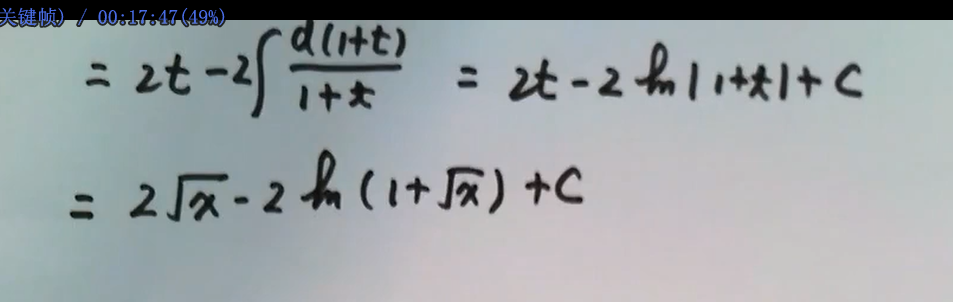 关键帧) / 00:17:47(49%)
= 2t - 2∫ d(1+t)/(1+t) = 2t - 2 ln|1+t| + C
= 2√x - 2 ln(1+√x) + C